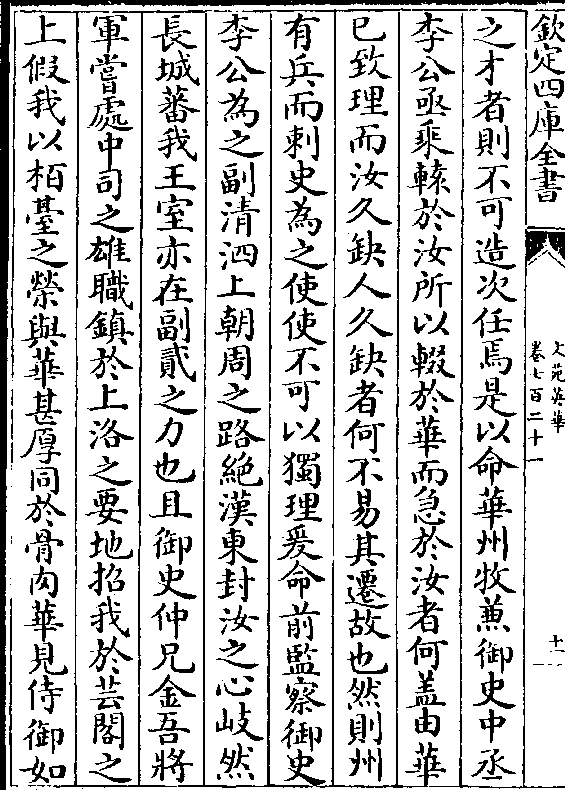 欽定四庫全書
文苑英華
卷七百二十一
十一
之才者則不可造次任焉是以命華州牧兼御史中丞
李公亟乘轅於汝所以輟於華而急於汝者何蓋由華
已致理而汝久缺人久缺者何不易其遷故也然則州
有兵而刺史為之使使不可以獨理爰命前監察御史
李公為之副清泗上朝周之路絶漢東封汝之心岐然
長城蕃我王室亦在副貳之力也且御史仲兄金吾將
軍嘗處中司之雄職鎮於上洛之要地招我於芸閣之
上假我以栢䑓之榮與華甚厚同於骨肉華見侍御如